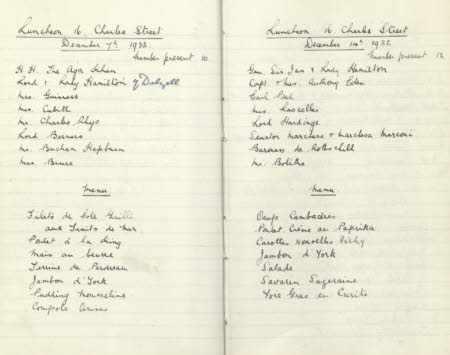 Luncheon 16, Charles Street
December 7th 1932.
Number present 10.
H. H. The Aga Khan
Lord & Lady Hamilton of Dalzell
Mrs. Guinness
Mrs. Cubitt
Mr Charles Rhys
Lord Berners
Mr. Buchan Hepburn
Mrs. Bruce
Menu
Filets de Sole Grillé
aux Fruits de Mer
Poulet à la King
Mais au beurre
Terrine de Perdreau
Jambon d'York
Pudding Mousseline
Compote Cerises
Luncheon 16. Charles Street
December 14th 1932
Number present 12
Gen. Sir Ian & Lady Hamilton
Capt. & Mrs. Anthony Eden
Earl Peel
Mrs. Lascelles
Lord Hardinge
Senator Marchese & Marchesa Marconi
Baroness de Rothschild
Mr. Bolitho
Menu
Oeufs Cambacères
Poulet Crème au Paprika
Carottes Nouvelles Vichy
Jambon d'York
Salade
Savarin Suzeraine
Foie Gras en